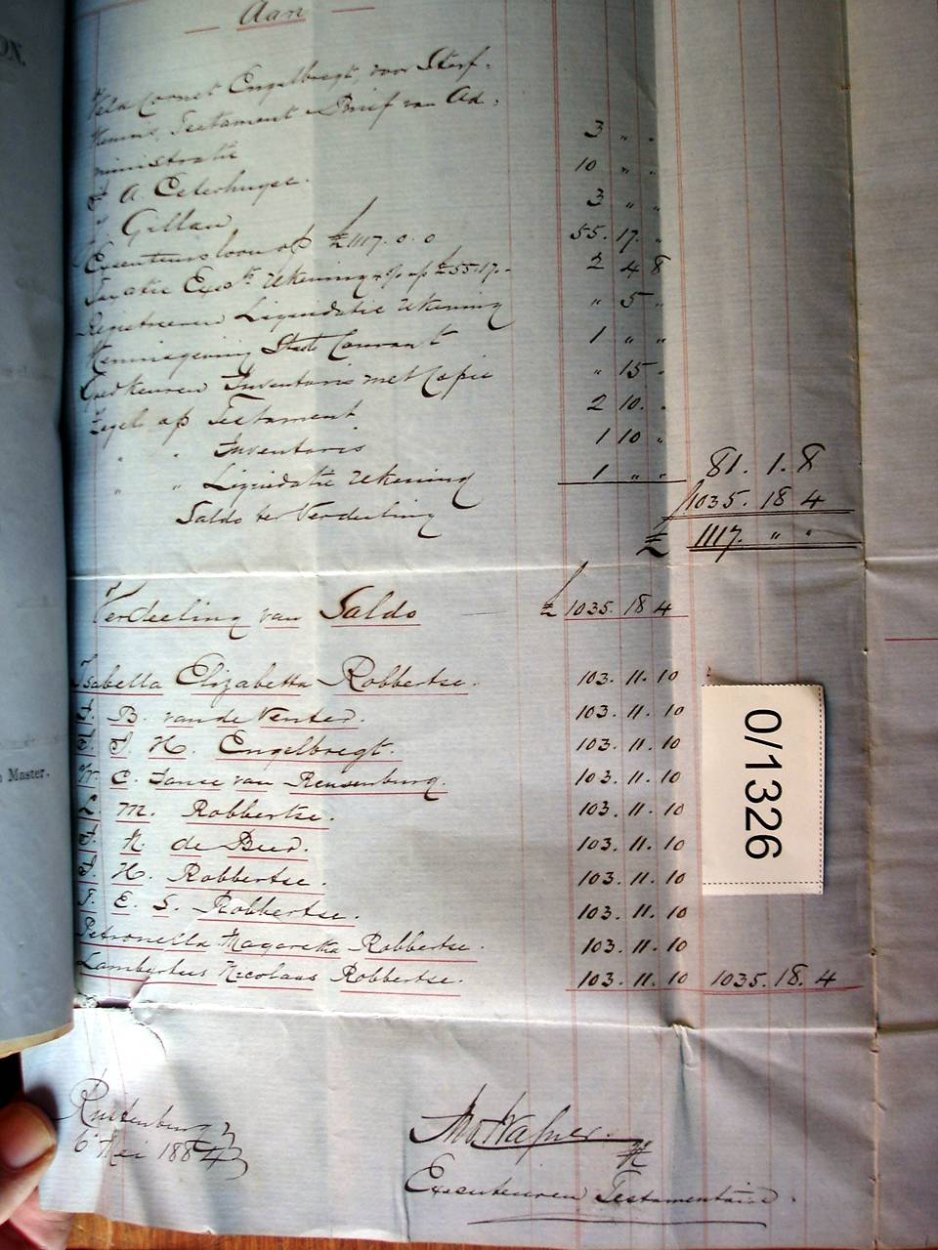 ON.
Master.
Aan
Veld Cornet Engelbregt, voor Sterf-
kennis, Testament & Brief van Ad-
ministratie 3 " "
A. Eeterhuyse. 10 " "
Gillan 3 " "
Executeursloon op £1117.0.0 55. 17. "
Taxatie Exect. Rekening op £55.17.- 2 4 8
Registreeren Liquidatie Rekening " 5 "
Kennisgeving Staats Courant 1 " "
Goedkeuren Inventaris met Copie " 15 "
Zegels op Testament 2 10. "
" " Inventaris 1 10 "
" " Liquidatie Rekening 1 " " 81. 1. 8
Saldo ter Verdeeling 1035. 18 4
£ 1117. " "
Verdeeling van Saldo £ 1035. 18 4
Isabella Elizabetta Robbertse. 103. 11. 10
B. van de Venter. 103. 11. 10
H. Engelbregt. 103. 11. 10
C. Janse van Rensenburg. 103. 11. 10
M. Robbertse. 103. 11. 10
N de Beer. 103. 11. 10
H. Robbertse. 103. 11. 10
E. S. Robbertse. 103. 11. 10
Petronella Magaretha Robbertse. 103. 11. 10
Lambertus Nicolaas Robbertse. 103. 11. 10 1035. 18. 4
0/1326
Rustenburg
6 Mei 1884
Executeuren Testamentair.